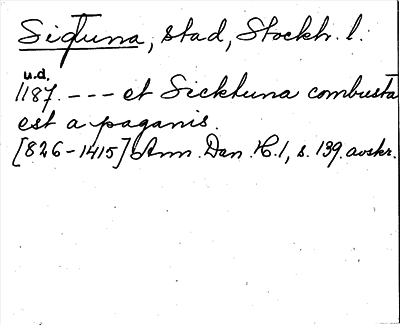 Sigtuna, stad, Stockh. l.
u.d.
1187. --- et Sicktuna combusta
est a paganis.
[826-1415] Ann. Dan. H. 1, s. 139. avskr.